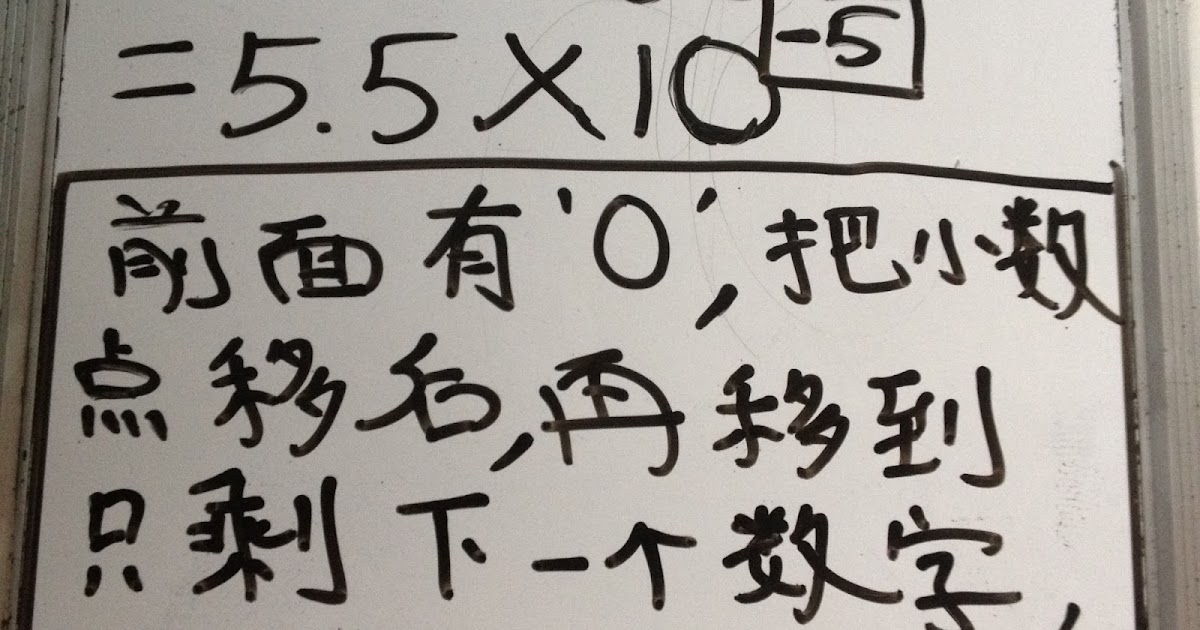 = 5.5 × 10⁻⁵
前面有'0',把小数
点移后,再移到
只剩下一个数字,